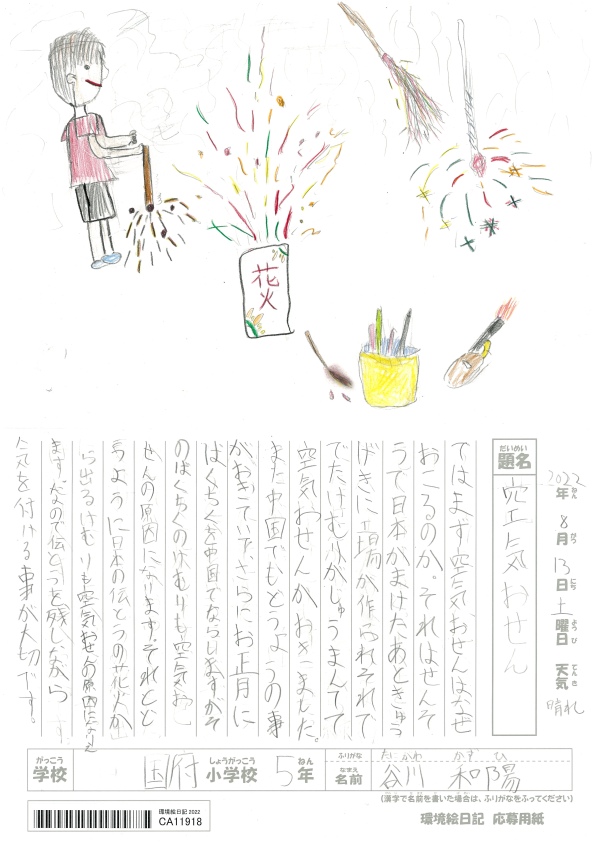 花火
2022年 8月 13日 土曜日 天気 晴れ
ねん がつ にち ようび てんき
だいめい
題名
空気おせん
ではまず空気おせんはなぜ
おこるのか。それはせんそ
うで日本がまけたあときゅう
げきに工場が作られそれで
でたけむりがしゅうまんてて
空気おせんがおきました。
また中国でもどうようの事
がおきていて、さらにお正月に
ばくちくを中国でならしますがそ
のばくちくのけむりも空気お
せんの原因になります。それとど
うように日本の伝とうの花火か
ら出るけむりも空気おせんの原因になり
ます。なので伝とうを残しながら
気を付ける事が大切です。
がっこう
学校
国府
しょうがっこう
小学校
5年
ねん
ふりがな
たにかわ かずひ
なまえ
名前
谷川 和陽
(漢字で名前を書いた場合は、ふりがなをふってください)
環境絵日記 2022
CA11918
環境絵日記 応募用紙